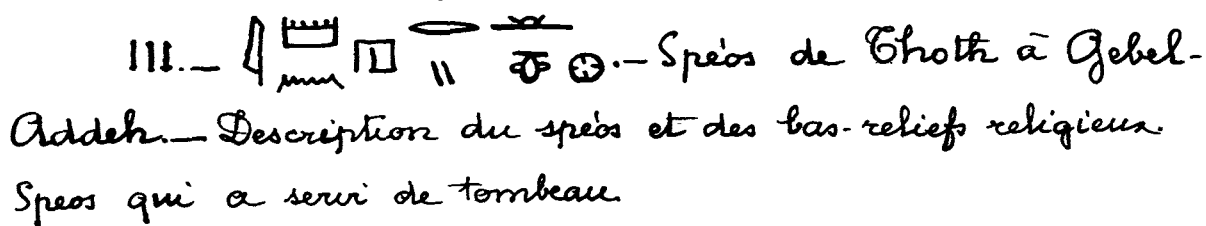 III.— 𓇋𓏠𓈖𓉔𓂋𓏭𓊃𓊖.— Spéos de Thoth à Gebel-
Addeh.— Description du spéos et des bas-reliefs religieux.
Speos qui a servi de tombeau.